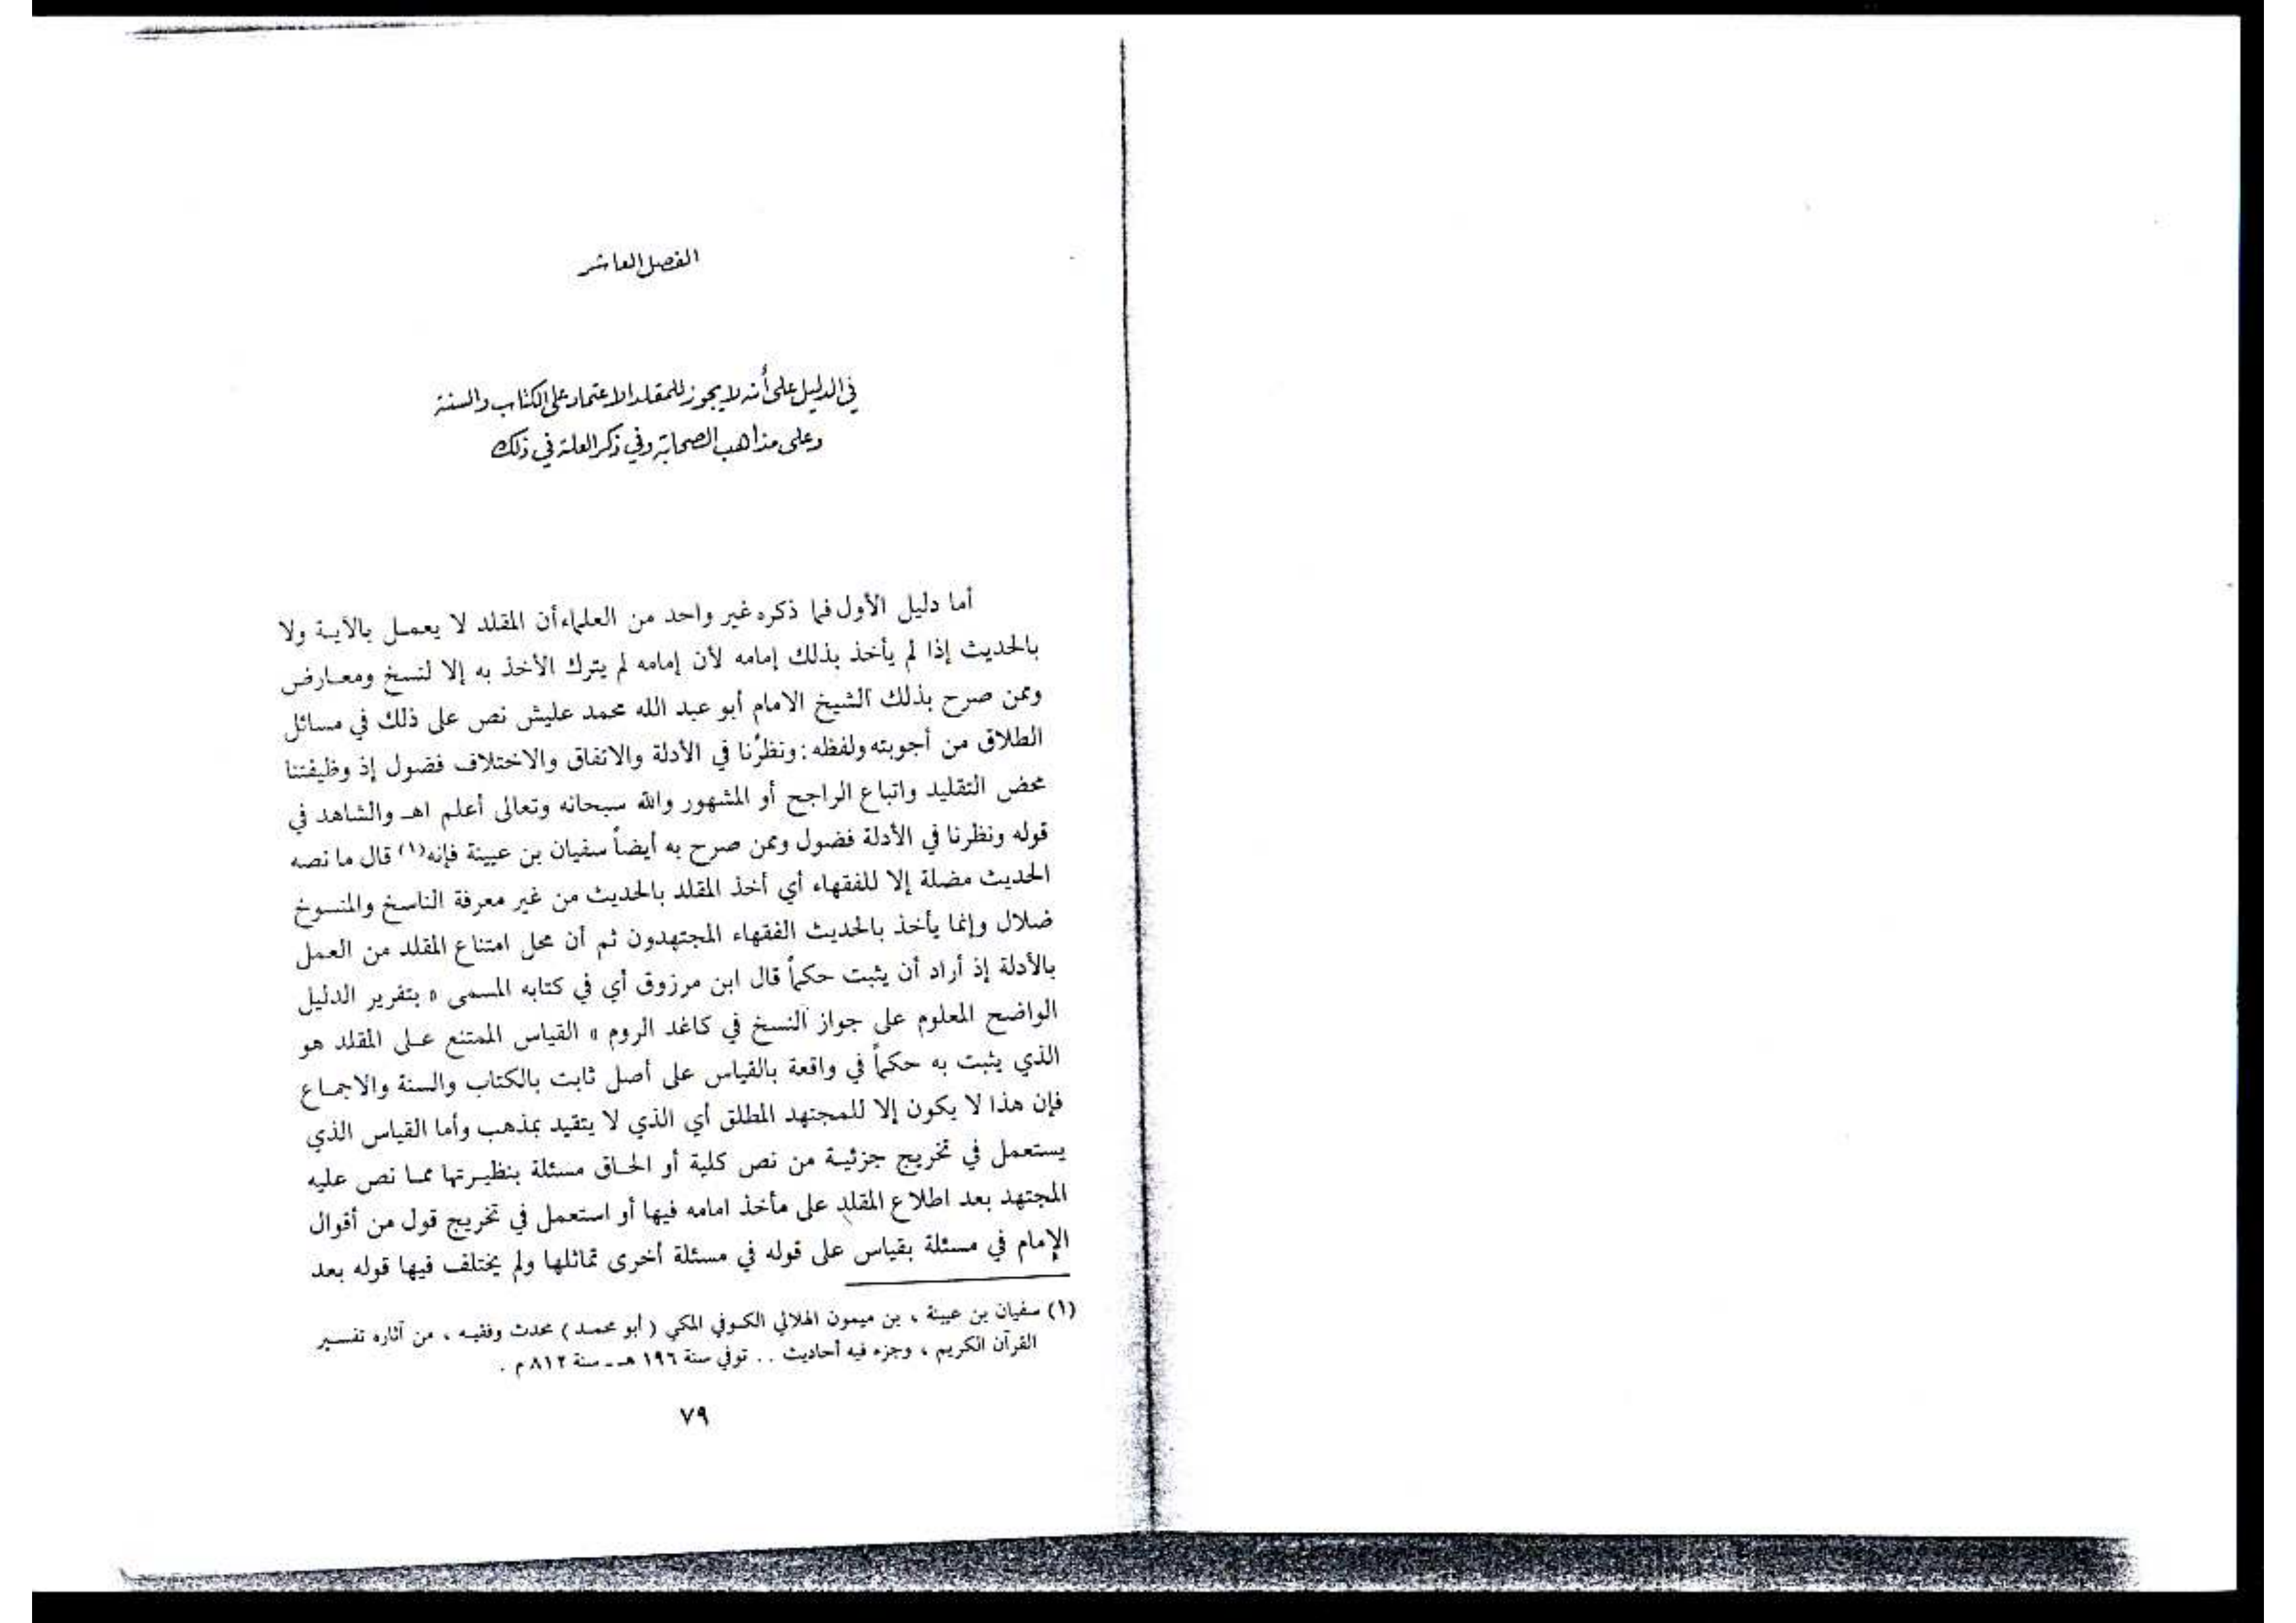 الفصل العاشر
في الدليل على أنه لا يجوز للمقلد الاعتماد على الكتاب والسنة
وعلى مذاهب الصحابة وفي ذكر العلة في ذلك
أما دليل الأول فما ذكره غير واحد من العلماء أن المقلد لا يعمل بالآية ولا
بالحديث إذا لم يأخذ بذلك إمامه لأن إمامه لم يترك الأخذ به إلا لنسخ ومعارض
وممن صرح بذلك الشيخ الامام أبو عبد الله محمد عليش نص على ذلك في مسائل
الطلاق من أجوبته ولفظه : ونظرُنا في الأدلة والاتفاق والاختلاف فضول إذ وظيفتنا
محض التقليد واتباع الراجح أو المشهور والله سبحانه وتعالى أعلم اهـ والشاهد في
قوله ونظرنا في الأدلة فضول وممن صرح به أيضاً سفيان بن عيينة فإنه (١) قال ما نصه
الحديث مضلة إلا للفقهاء أي أخذ المقلد بالحديث من غير معرفة الناسخ والمنسوخ
ضلال وإنما يأخذ بالحديث الفقهاء المجتهدون ثم أن محل امتناع المقلد من العمل
بالأدلة إذ أراد أن يثبت حكماً قال ابن مرزوق أي في كتابه المسمى « بتقرير الدليل
الواضح المعلوم على جواز النسخ في كاغد الروم » القياس الممتنع على المقلد هو
الذي يثبت به حكماً في واقعة بالقياس على أصل ثابت بالكتاب والسنة والاجماع
فإن هذا لا يكون إلا للمجتهد المطلق أي الذي لا يتقيد بمذهب وأما القياس الذي
يستعمل في تخريج جزئية من نص كلية أو الحاق مسئلة بنظيرتها مما نص عليه
المجتهد بعد اطلاع المقلد على مأخذ امامه فيها أو استعمل في تخريج قول من أقوال
الإمام في مسئلة بقياس على قوله في مسئلة أخرى تماثلها ولم يختلف فيها قوله بعد
(١) سفيان بن عيينة ، بن ميمون الهلالي الكوفي المكي ( أبو محمد ) محدث وفقيه ، من آثاره تفسير
القرآن الكريم ، وجزء فيه أحاديث . . توفي سنة ١٩٦ هـ ـ سنة ٨١٢ م .
٧٩